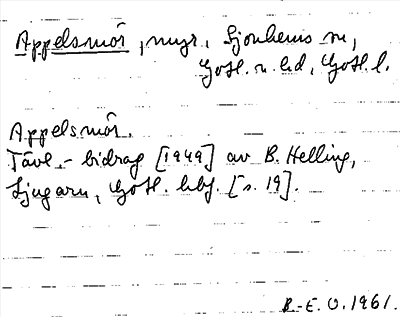 Appelsmör, myr, Sjonhems sn,
Gotl. n. hd, Gotl. l.
Appelsmör.
Tävl.-bidrag [1949] av B. Helling,
Ljugarn, Gotl. hbf. [s. 19].
B.-E. O. 1961.